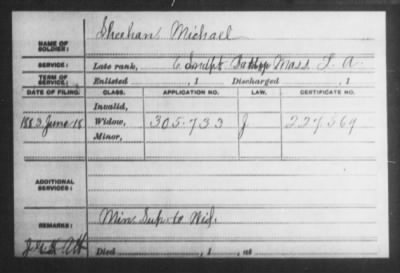 NAME OF SOLDIER: Sheehan Michael
SERVICE: Late rank, Batty Mass. L. A.
TERM OF SERVICE: Enlisted , 1 Discharged , 1
DATE OF FILING. CLASS. APPLICATION NO. LAW. CERTIFICATE NO.
Invalid,
1883 June 18 Widow, 305.733 J 227569
Minor,
ADDITIONAL SERVICES:
REMARKS: Min. Sup. to Wid.
Died , 1 , at